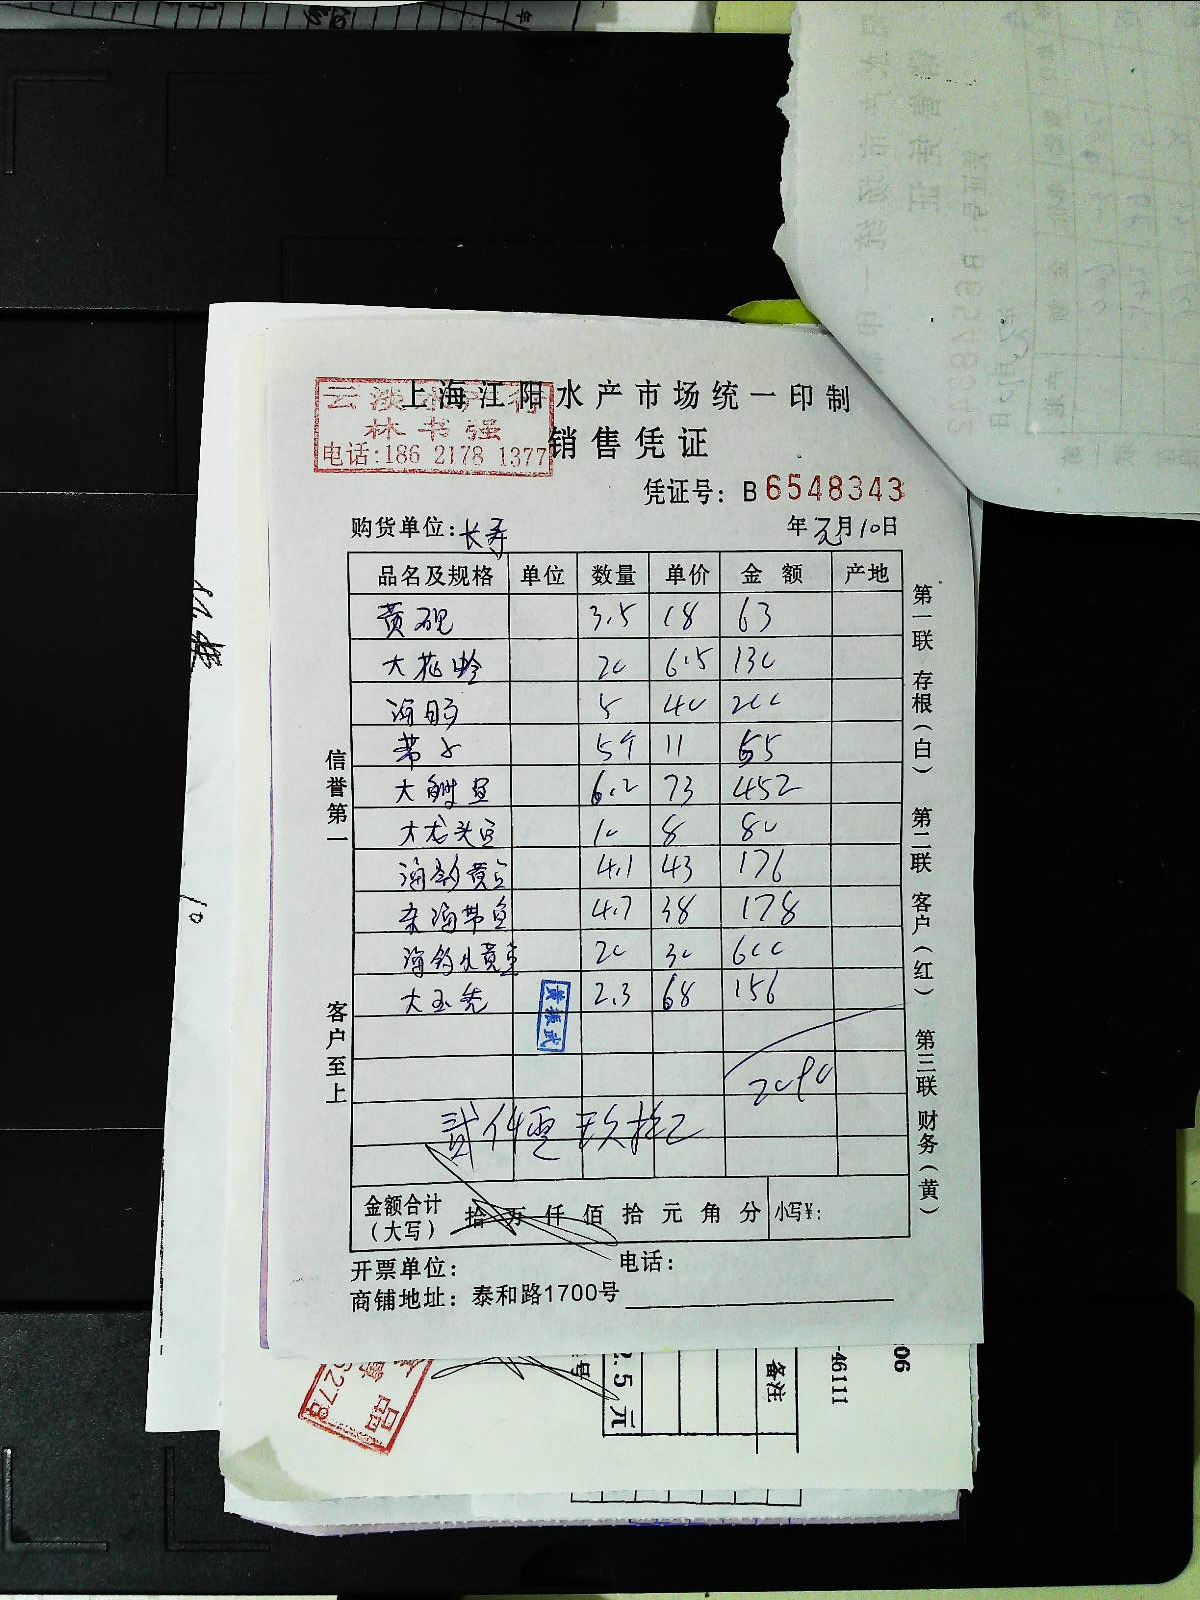 上海江阳水产市场统一印制
云淡水产行
林书强
电话:186 2178 1377
销售凭证
凭证号: B 6548343
购货单位:长寿 年元月10日
品名及规格 单位 数量 单价 金额 产地
黄砚 3.5 18 63
大花蛤 20 6.5 130
海肠 5 40 200
带子 5个 11 55
大鲥鱼 6.2 73 452
大龙头鱼 10 8 80
海钓黄鱼 4.1 43 176
东海带鱼 4.7 38 178
海钓小黄鱼 20 30 600
大玉秃 2.3 68 156
黄振武
2090
贰仟零玖拾元
金额合计(大写) 拾万仟佰拾元角分 小写¥:
开票单位: 电话:
商铺地址: 泰和路1700号
信誉第一 客户至上
第一联 存根(白) 第二联 客户(红) 第三联 财务(黄)
10
2.5元
备注
46111
06